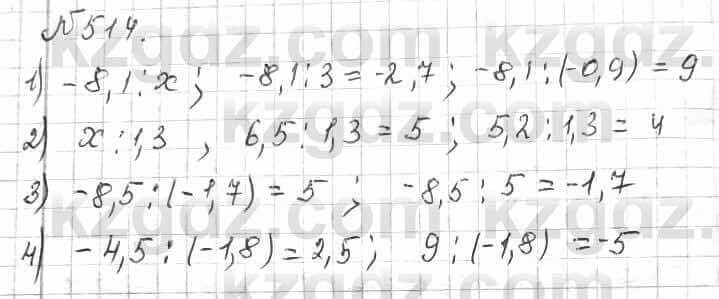 №514.
1) -8,1:x; -8,1:3=-2,7; -8,1:(-0,9)=9
2) x:1,3, 6,5:1,3=5; 5,2:1,3=4
3) -8,5:(-1,7)=5; -8,5:5=-1,7
4) -4,5:(-1,8)=2,5; 9:(-1,8)=-5